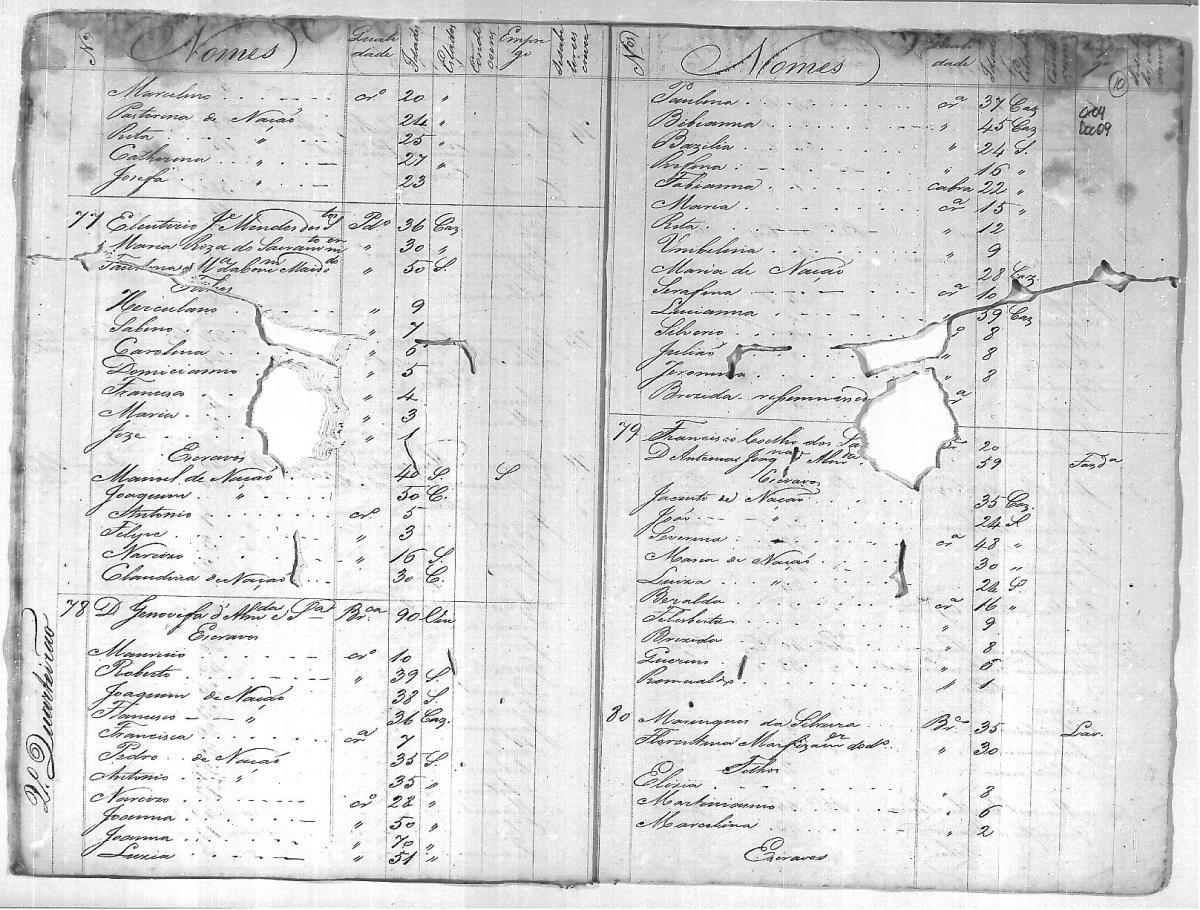 Nº Nomes Quali dade Idades Estados Condi coens Empre go
Marcelino crº 20 "
Pastorina de Nação 24 "
Rita " 25 "
Catherina " 27 "
Josefa " 23
77 Eleuterio Jᵉ Mendes dos Sᵗᵒˢ Pdº 36 Caz
Maria Roza do Sacramᵗᵒ " 30 "
" 50 S.
Filhos
Herculano " 9
Sabino " 7
Carolina " 6
Domicianno " 5
Francisco " 4
Maria " 3
Joze " 1
Escravos
Manuel de Nação 40 S. S
Joaquim " 50 C.
Antonio crº 5
Felipe " 3
Narcizo " 16 S.
Claudina de Nação 30 C.
78 D Genovefa d'Almᵈᵃ Brᶜᵃ 90
Escravos
Mauricio crº 10
Roberto " 39 S.
Joaquim de Nação 38 S.
Francisco " 36 Caz.
Francisca crª 7
Pedro de Nação 35 S.
Antonio " 35 "
Narcizo crº 22 "
Joanna " 50 "
Joanna " 70 "
Luzia " 51 "
2º Quarteirão
Nº Nomes Quali dade
10
Cx04
Doc09
Paulina crª 37 Caz
Bibianna " 45 Caz
Bazilia " 24 S.
Rufina " 16 "
Fabianna cabra 22 "
Maria crª 15 "
Rita " 12
Umbelina " 9
Maria de Nação 28 Caz
Serafina crª 10
Lucianna " 59 Caz
Silverio º 8
Julião " 8
Jeronimo " 8
Brozida ª
79 Francisco Coelho dos 20
D Antonia Joaqⁿᵃ 59 Fazdª
Escravos
Jacinto de Nação 35 Caz
João " 24 S
Severina crª 48 "
Maria de Nação 30 "
Luiza " 24 S
Beralda crª 16 "
Filisberta " 9
Brozida " 8
" 6
Romualdo " 1
80 da Silveira Brº 35 Lav.
Florentina " 30
Filhos
Elizia " 8
Martinianno " 6
Marcelina " 2
Escravos